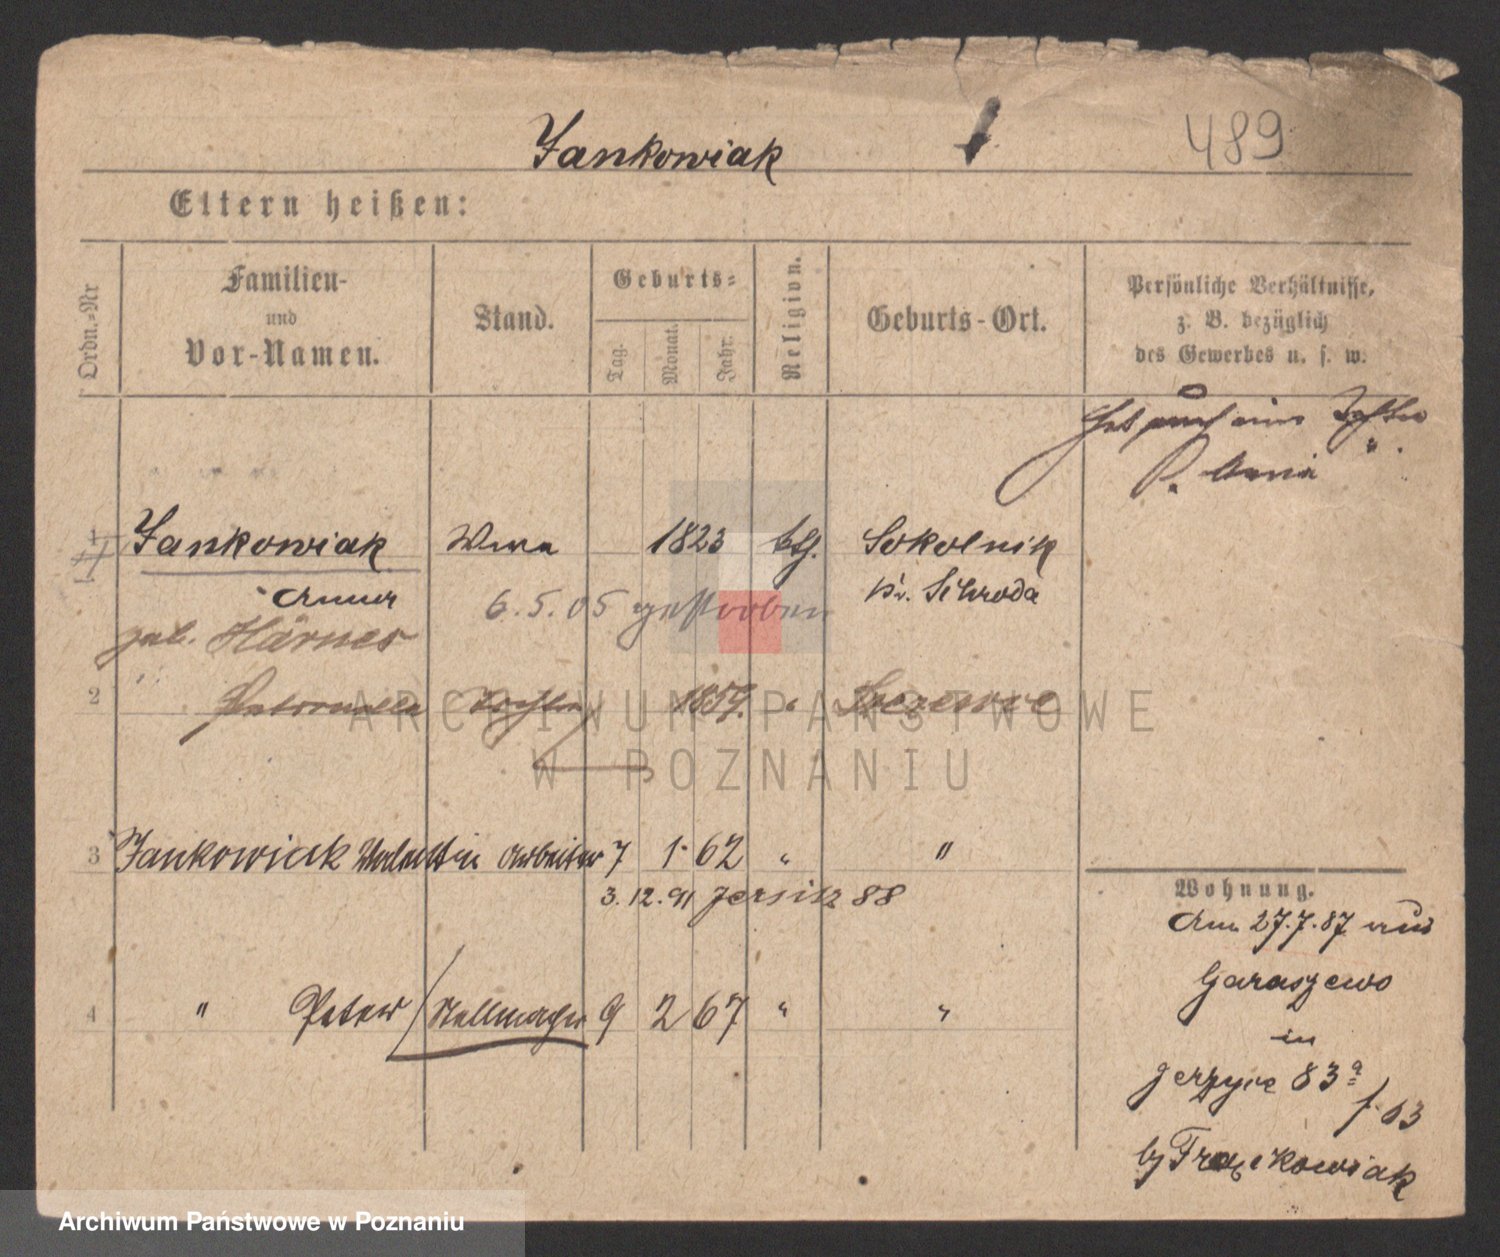 Jankowiak
489
Eltern heißen:
Ordn.-Nr
Familien-
und
Vor-Namen.
Stand.
Geburts-
Tag.
Monat.
Jahr.
Religion.
Geburts-Ort.
Persönliche Verhältnisse,
z. B. bezüglich
des Gewerbes u. s. w.
Hat auch eine Tochter
1 Jankowiak 1823 kth. Sokolnik
Kr. Schroda
6.5.05 gestorben
geb.
2 Petronella Tochter 1859. "
3 Jankowiak Valentin Arbeiter 7 1. 62 " "
3.12.91 Jersitz 88
4 " Peter Stellmacher 9 2 67 " "
Wohnung.
Am 27.7.87 aus
Garaszewo
in
Jerzyce 83a
f. 63
by Frąckowiak
ARCHIWUM PAŃSTWOWE
W POZNANIU
Archiwum Państwowe w Poznaniu